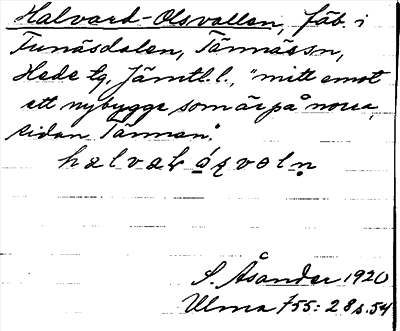 Halvard-Olsvallen, fäb. i
Funäsdalen, Tännässn,
Hede tg, Jämtl. l., "mitt emot
ett nybygge som är på norra
sidan Tännan".
S. Åsander 1920
Ulma 755: 28 s. 54